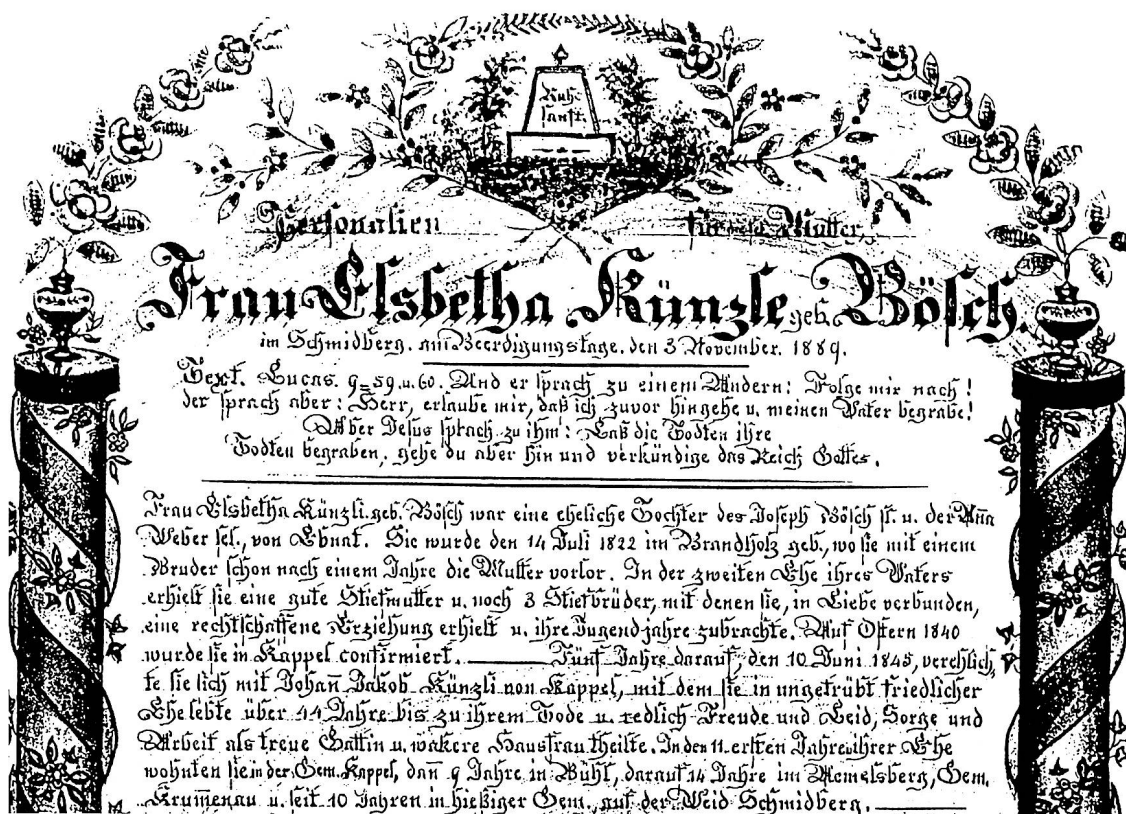 Ruhe
sanft.
Personalien für die Mutter,
Frau Elsbetha Künzle geb. Bösch.
im Schmidberg, am Beerdigungstage, den 3 November. 1889.
Text. Lucas. 9=59. u. 60. Und er sprach zu einem Andern: Folge mir nach!
der sprach aber: Herr, erlaube mir, daß ich zuvor hingehe u. meinen Vater begrabe!
Aber Jesus sprach zu ihm: Laß die Todten ihre
Todten begraben, gehe du aber hin und verkündige das Reich Gottes.
Frau Elsbetha Künzli geb. Bösch war eine eheliche Tochter des Joseph Bösch sl. u. der Aña
Weber sel., von Ebnat. Sie wurde den 14 Juli 1822 im Brandholz geb., wo sie mit einem
Bruder schon nach einem Jahre die Mutter vorlor. In der zweiten Ehe ihres Vaters
erhielt sie eine gute Stiefmutter u. noch 3 Stiefbrüder, mit denen sie, in Liebe verbunden,
eine rechtschaffene Erziehung erhielt u. ihre Jugendjahre zubrachte. Auf Ostern 1840
wurde sie in Kappel confirmiert. Fünf Jahre darauf, den 10 Juni 1845, verehlich,
te sie sich mit Johañ Jakob Künzli von Kappel, mit dem sie in ungetrübt friedlicher
Ehe lebte über 44 Jahre bis zu ihrem Tode u. redlich Freude und Leid, Sorge und
Arbeit als treue Gattin u. wakere Hausfrau theilte. In den 11 ersten Jahren ihrer Ehe
wohnten sie in der Gem. Kappel, dañ 9 Jahre in Bühl, darauf 14 Jahre im Aemelsberg, Gem.
Krum̄enau u. seit 10 Jahren in hießiger Gem., auf der Weid Schmidberg.